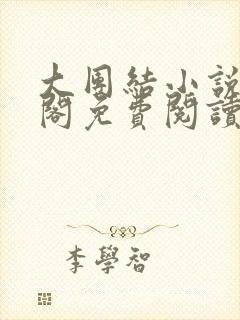 大團結小說
閣免費閱讀
李學智